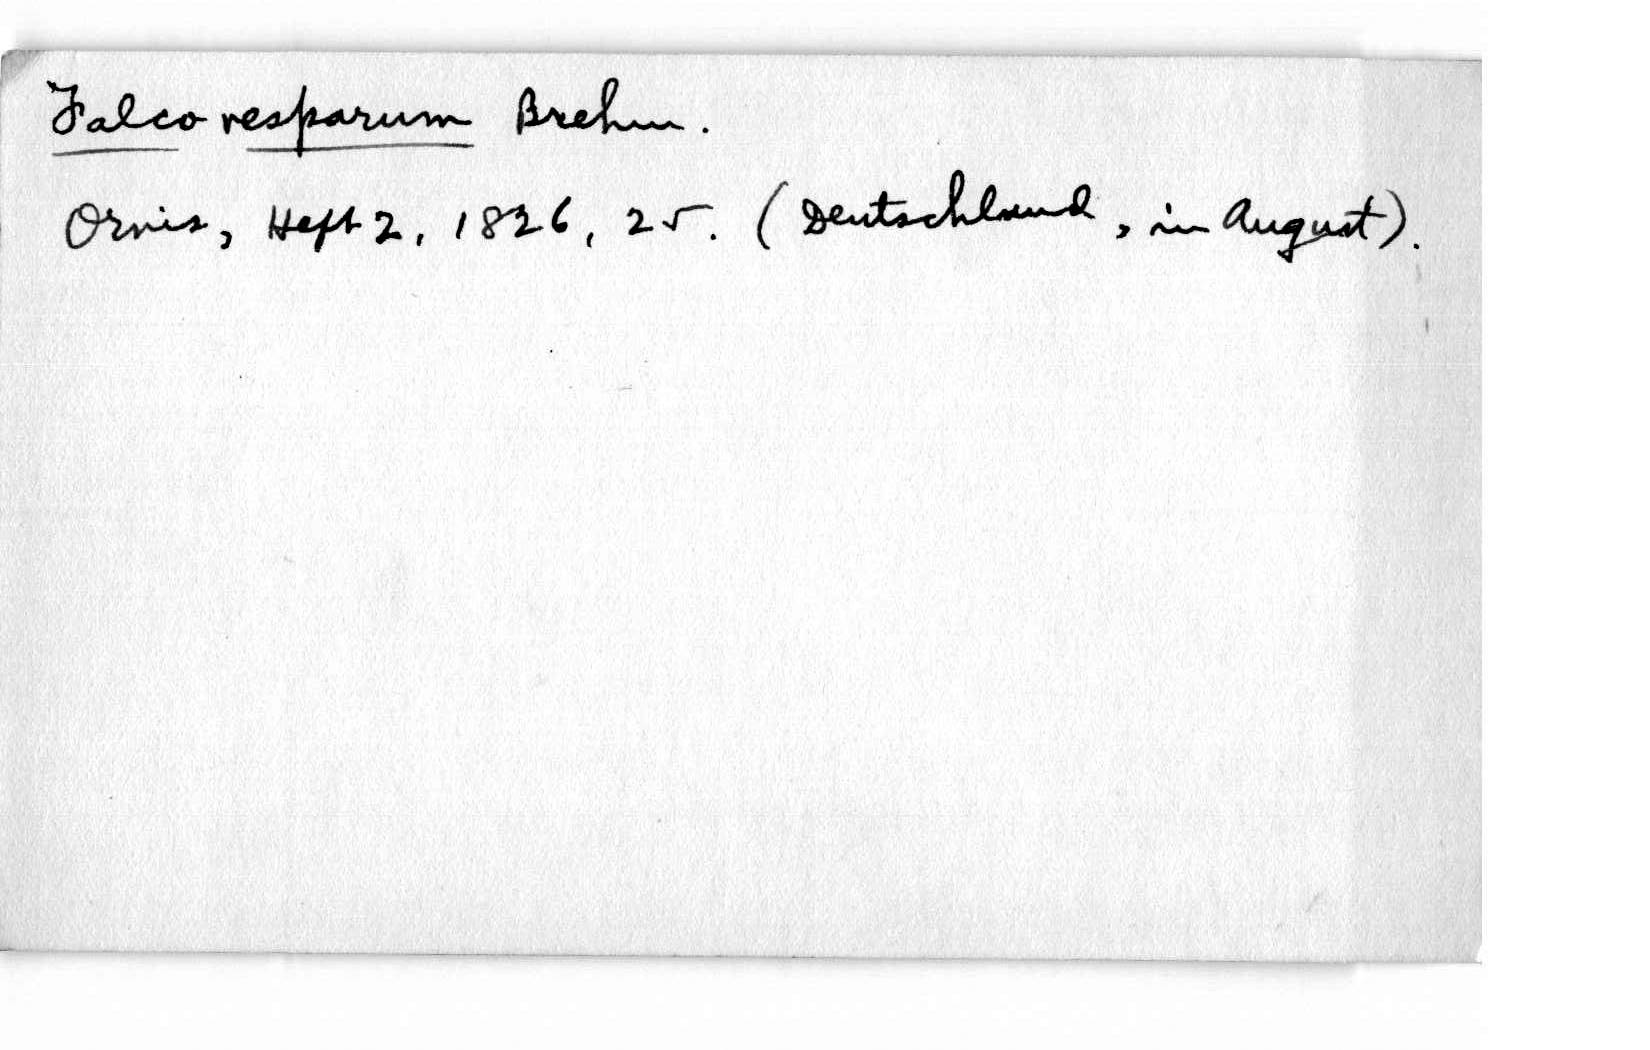 Falco vesparum Brehm.
Ornis, Heft 2, 1826, 25. (Deutschland, in August).